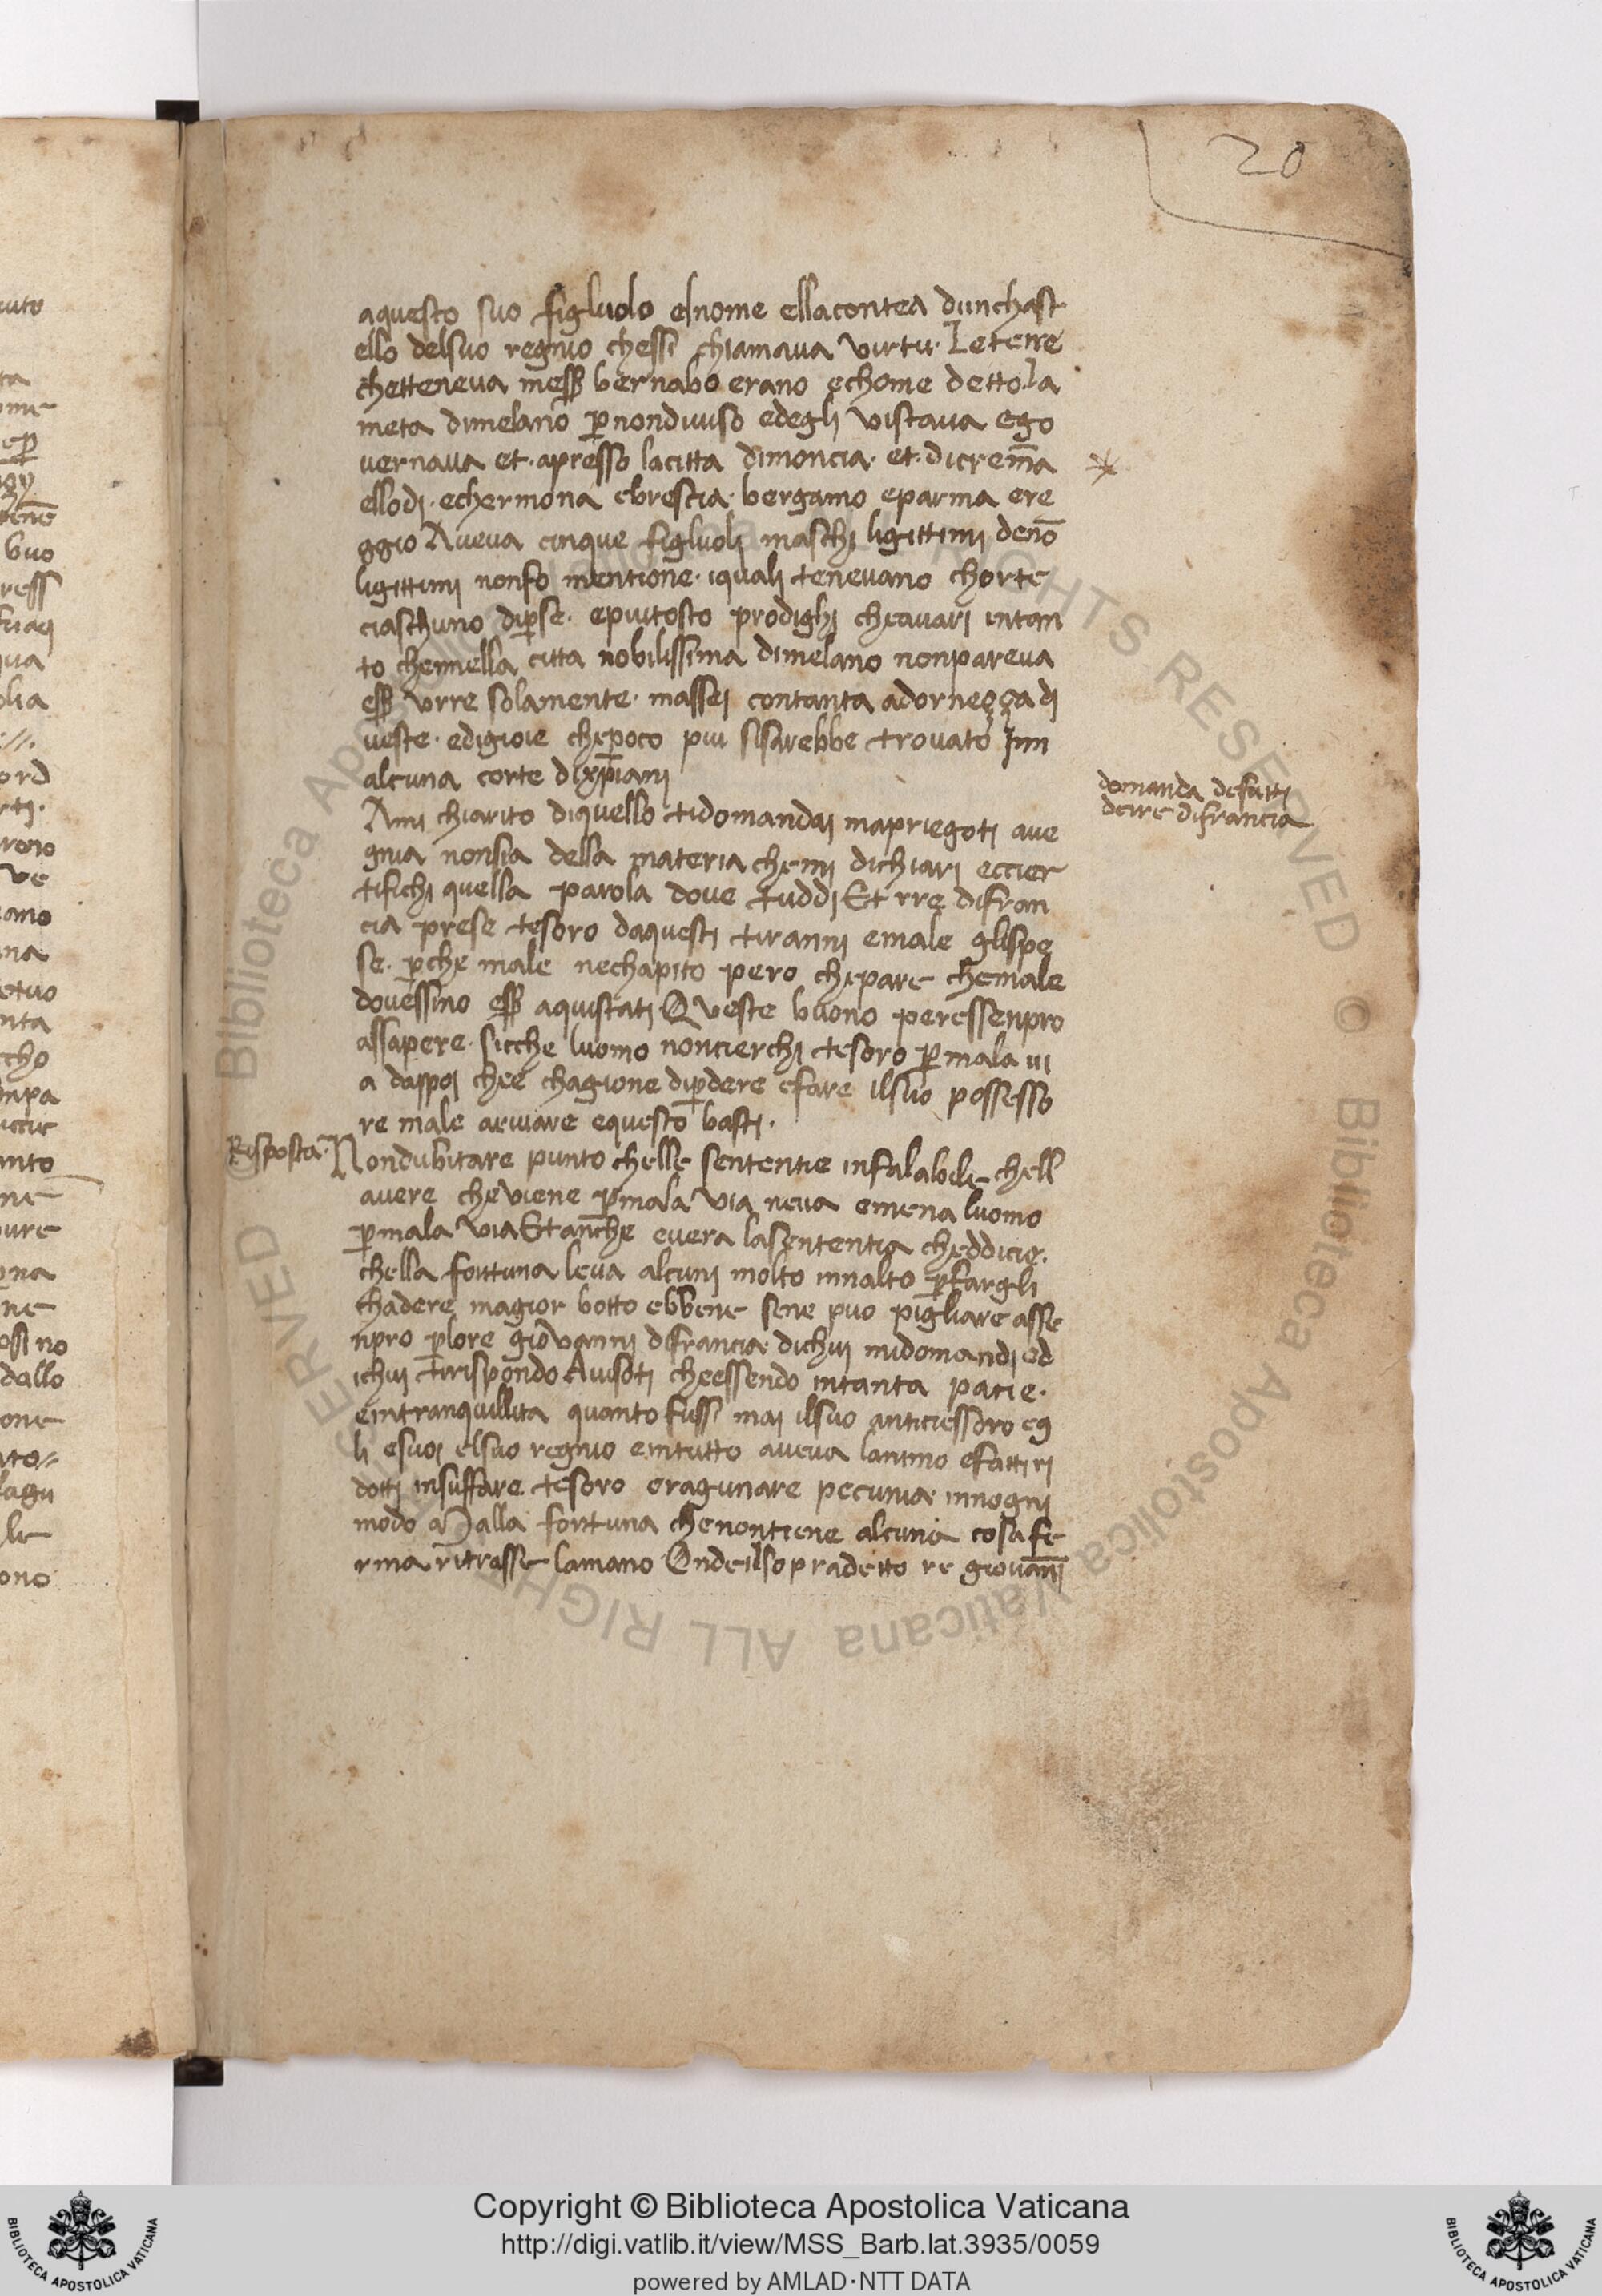 20
aquesto suo figluolo elnome ellacontea dunchast
ello delsuo regnio chessi chiamava virtu. Leterre
chetteneva mess̄ bernabo erano echome detto.la
meta dimelano p̄nondiviso edegli vistava ego
vernava et.apresso lacitta dimoncia. et.dicrem̄a
ellodi.echermona ebrescia.bergamo eparma ere
ggio Aveva cinque figluoli maschi ligittimi denō
ligittimi nonfo mentione.iquali tenevano chorte
ciaschuno dip̄se. epiutosto prodighi cheavari intan
to chennella citta nobilissima dimelano nonpareva
ess̄ vrre solamente. massei contanta adorneçça di
veste.edigioie chepoco piu sisarebbe trovato Inn
alcuna corte dixp̄iani
domanda defatti
deire difrancia
Ami chiarito diquello tidomandai mapriegoti ave
gnia nonsia della materia chemi dichiari eccier
tifichi quella parola dove tuddi Et rre difran
cia prese tesoro daquesti tiranni emale glispe
se. p̄che male nechapito pero chepare chemale
dovessino ess̄ aquistati Queste buono peressenpro
assapere.sicche luomo noncierchi tesoro p̄mala vi
a dappoi chee chagione dip̄dere efare ilsuo possesso
re male arivare equesto basti.
Risposta.
Nondubitare punto chelle sententie infalabile chell
avere cheviene p̄mala via neva emena luomo
p̄mala via Etanche evera lasententia cheddicie.
chella forttuna leva alcuni molto innalto p̄fargli
chadere magior botto ebbene sene puo pigliare asse
npro p̄lore giovanni difrancia.dichui midomandi ed
ichui tirispondo Avisoti cheessendo intanta pacie.
eintranquillita quanto fussi mai ilsuo anticiessoro eg
li esuoi elsuo regnio eintutto aveva lanimo efatti ri
dotti insuffare tesoro eragunare pecunia innogni
modo Dalla forttuna chenontiene alcuna cosa fe
rma ritrasse lamano Ondeilsopradetto re giovan̄i
Copyright © Biblioteca Apostolica Vaticana
http://digi.vatlib.it/view/MSS_Barb.lat.3935/0059
powered by AMLAD·NTT DATA